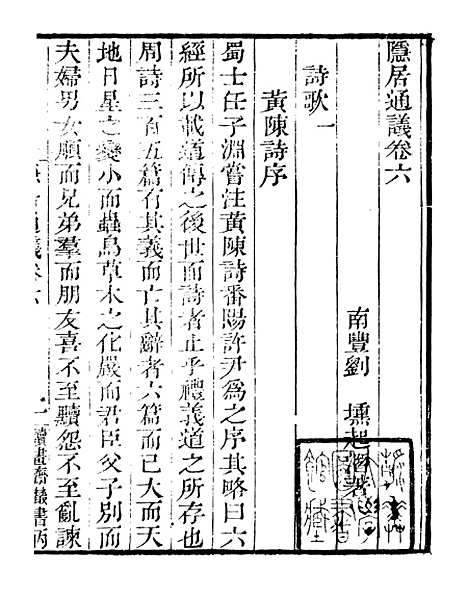 隱居通議卷六
南豐劉壎起潛著
詩歌一
黃陳詩序
蜀士任子淵嘗注黃陳詩番陽許尹為之序其略曰六
經所以載道傳之後世而詩者止乎禮義道之所存也
周詩三百五篇有其義而亡其辭者六篇而已大而天
地日星之變小而蟲鳥草木之化嚴而君臣父子別而
夫婦男女順而兄弟羣而朋友喜不至黷怨不至亂諫
隱居通議卷六
一
讀畫齋叢書丙